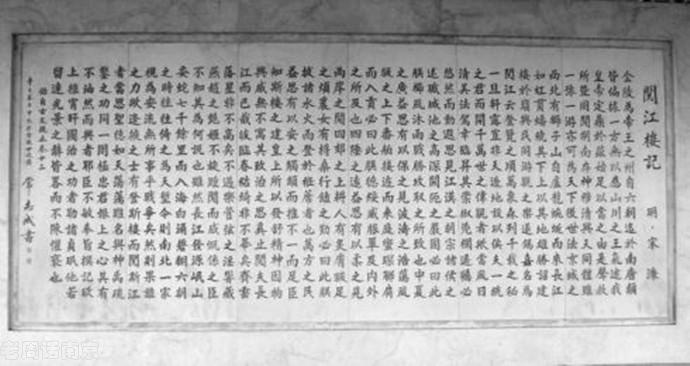 閱江樓記
明·宋濂
金陵為帝王之州自六朝迄於南唐類
皆偏據一方無以應山川之王氣逮我
皇帝定鼎於茲始足以當之由是聲教
所暨罔間朔南存神穆清與天同體雖
一豫一游亦可為天下後世法京城之
西北有獅子山自盧龍蜿蜒而來長江
如虹貫蟠繞其下上以其地雄勝詔建
樓於巔與民同游觀之樂遂錫嘉名為
閱江云登覽之頃萬象森列千載之秘
一旦軒露豈非天造地設以俟大一統
之君而開千萬世之偉觀者歟當風日
清美法駕幸臨昇其崇椒憑闌遙矚必
悠然而動遐思見江漢之朝宗諸侯之
述職城池之高深關阨之嚴固必曰此
朕櫛風沐雨戰勝攻取之所致也中夏
之廣益思有以保之見波濤之浩蕩風
帆之上下番舶接迹而來庭蠻琛聯肩
而入貢必曰此朕德綏威服覃及內外
之所及也四陲之遠益思有以柔之見
兩岸之間四郊之上耕人有炙膚皸足
之煩農女有捋桑行饁之勤必曰此朕
拔諸水火而登於衽席者也萬方之民
益思有以安之觸類而推不一而足臣
知斯樓之建皇上所以發舒精神因物
興感無不寓其致治之思奚止閱夫長
江而已哉彼臨春結綺非不華矣齊雲
落星非不高矣不過樂管弦之淫響藏
燕趙之艷姬不旋踵間而感慨係之臣
不知其為何說也雖然長江發源岷山
委蛇七千餘里而入海白湧碧翻六朝
之時往往倚之為天塹今則南北一家
視為安流無所事乎戰爭矣然則果誰
之力歟逢掖之士有登斯樓而閱斯江
者當思聖德如天蕩蕩難名與神禹疏
鑿之功同一罔極忠君報上之心其有
不油然而興者耶臣不敏奉旨撰記欲
上推宵旰圖治之功者勒諸貞珉他若
留連光景之辭皆略而不陳懼褻也
常志成書
老周话南京